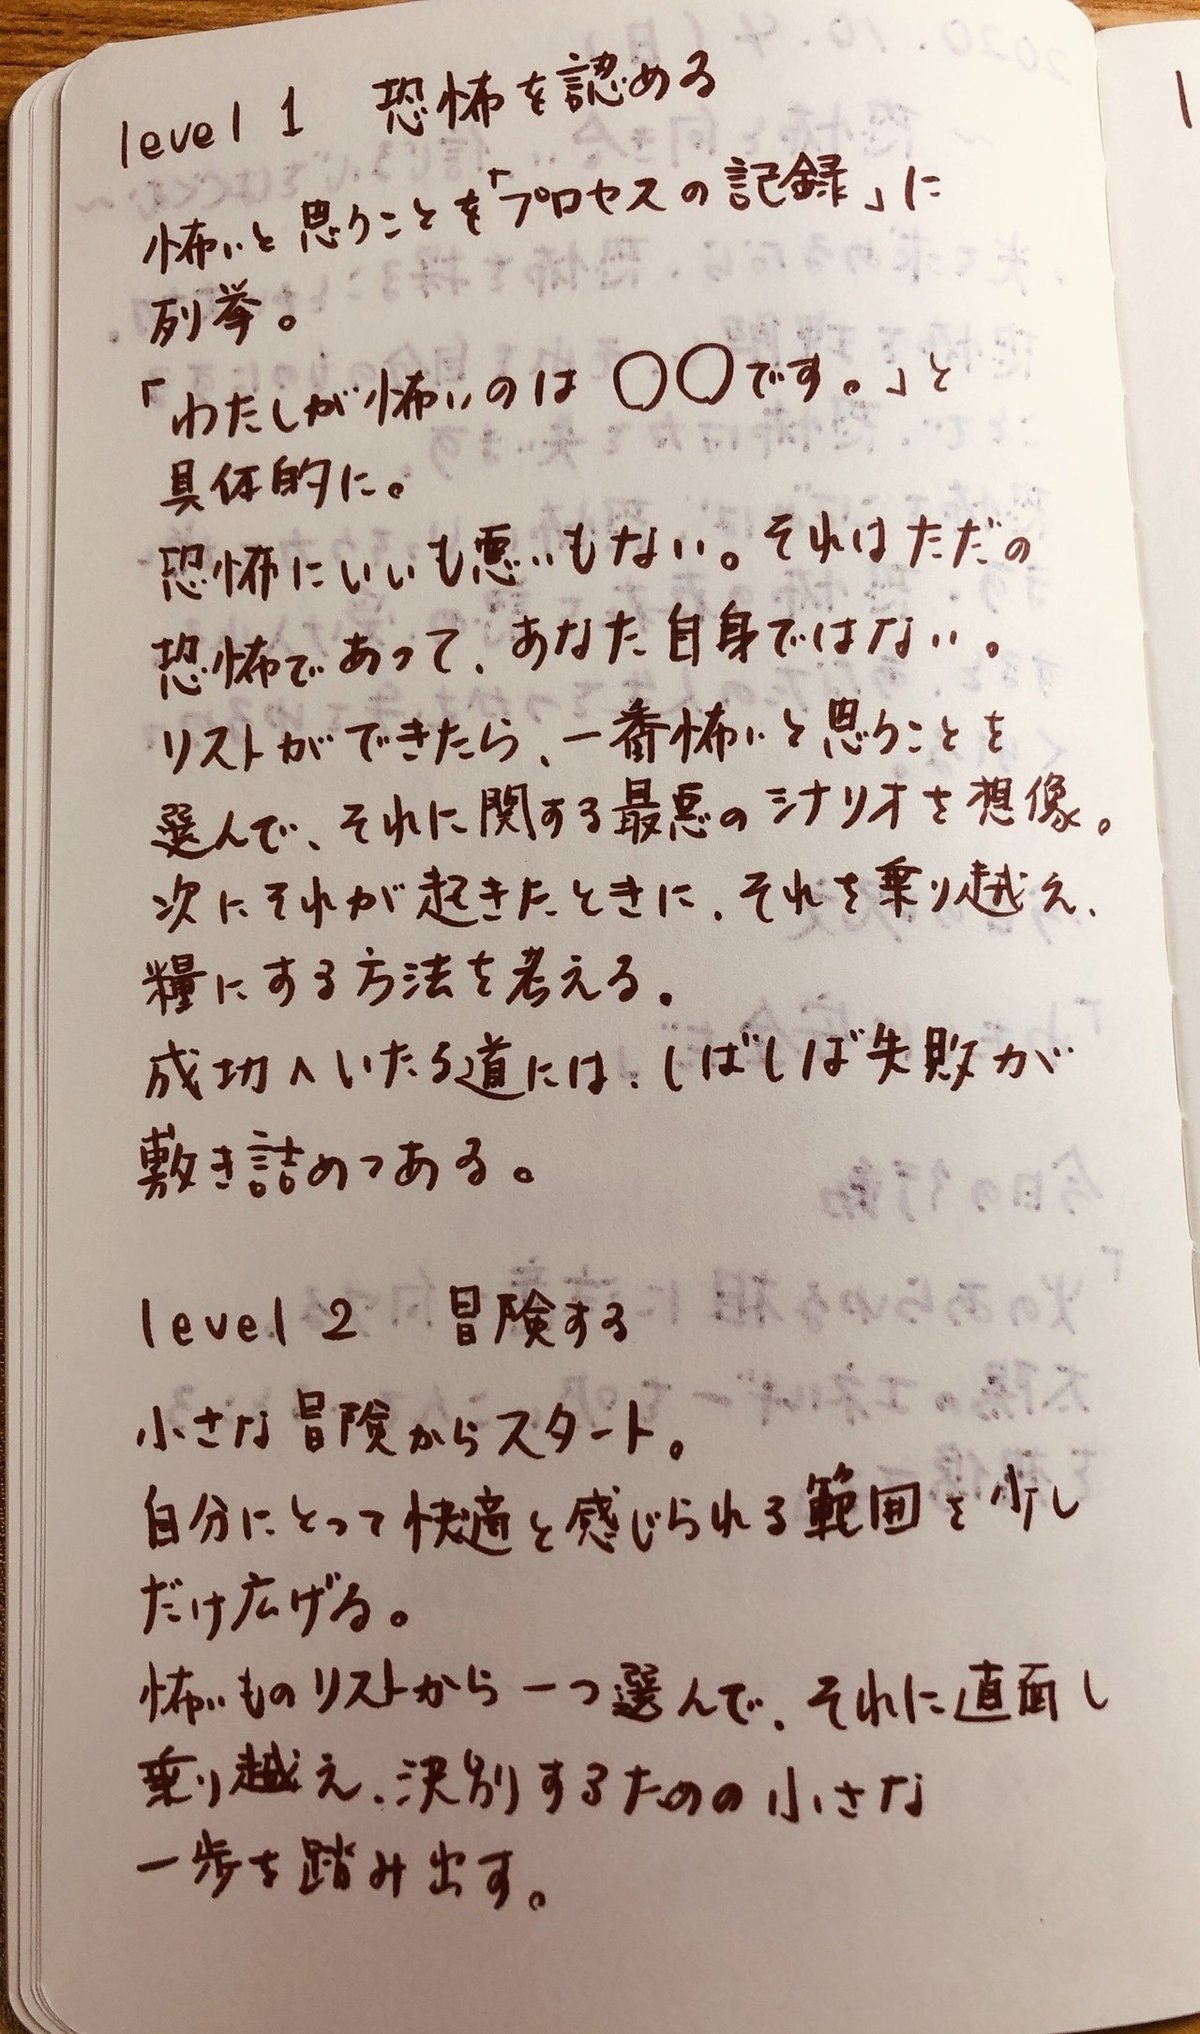 level 1 恐怖を認める
怖いと思うことを「プロセスの記録」に
列挙。
「わたしが怖いのは○○です。」と
具体的に。
恐怖にいいも悪いもない。それはただの
恐怖であって、あなた自身ではない。
リストができたら、一番怖いと思うことを
選んで、それに関する最悪のシナリオを想像。
次にそれが起きたときに、それを乗り越え、
糧にする方法を考える。
成功へいたる道には、しばしば失敗が
敷き詰めてある。
level 2 冒険する
小さな冒険からスタート。
自分にとって快適と感じられる範囲を少し
だけ広げる。
怖いものリストから一つ選んで、それに直面し
乗り越え、決別するための小さな
一歩を踏み出す。